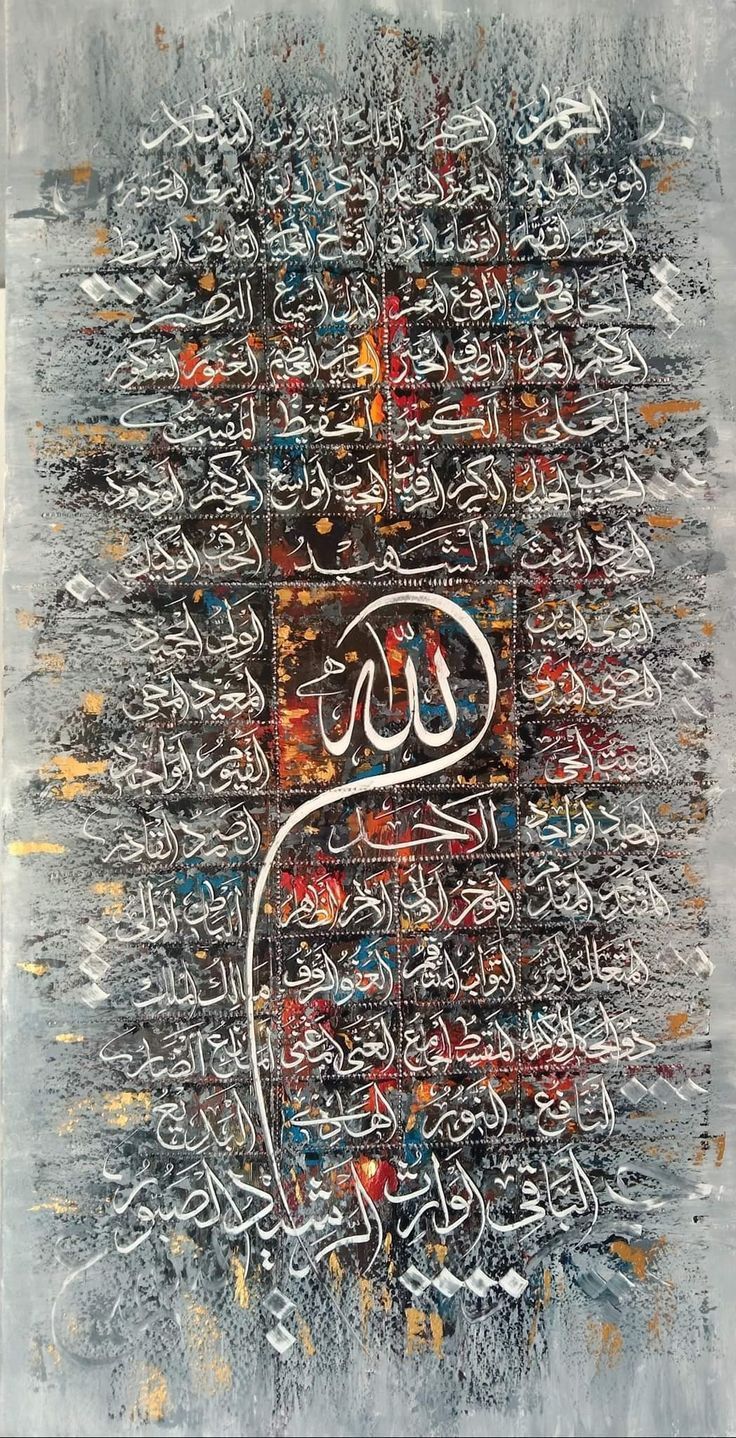 الرحمن الرحيم الملك القدوس السلام
المؤمن المهيمن العزيز الجبار المتكبر الخالق البارئ المصور
الغفار القهار الوهاب الرزاق الفتاح العليم القابض الباسط
الخافض الرافع المعز المذل السميع البصير
الحكم العدل اللطيف الخبير الحليم العظيم الغفور الشكور
العلي الكبير الحفيظ المقيت
الحسيب الجليل الكريم الرقيب المجيب الواسع الحكيم الودود
المجيد الباعث الشهيد الحق الوكيل
القوى المتين الولي الحميد
المحصى المبدئ المعيد المحي
الله
المميت الحي القيوم الواجد
الماجد الواحد الاحد الصمد القادر
المقتدر المقدم المؤخر الاول الاخر الظاهر الباطن الوالي
المتعال البر التواب المنتقم العفو الرؤوف مالك الملك
ذوالجلال والاكرام المقسط الجامع الغني المغني المانع الضار
النافع النور الهادي البديع
الباقي الوارث الرشيد الصبور